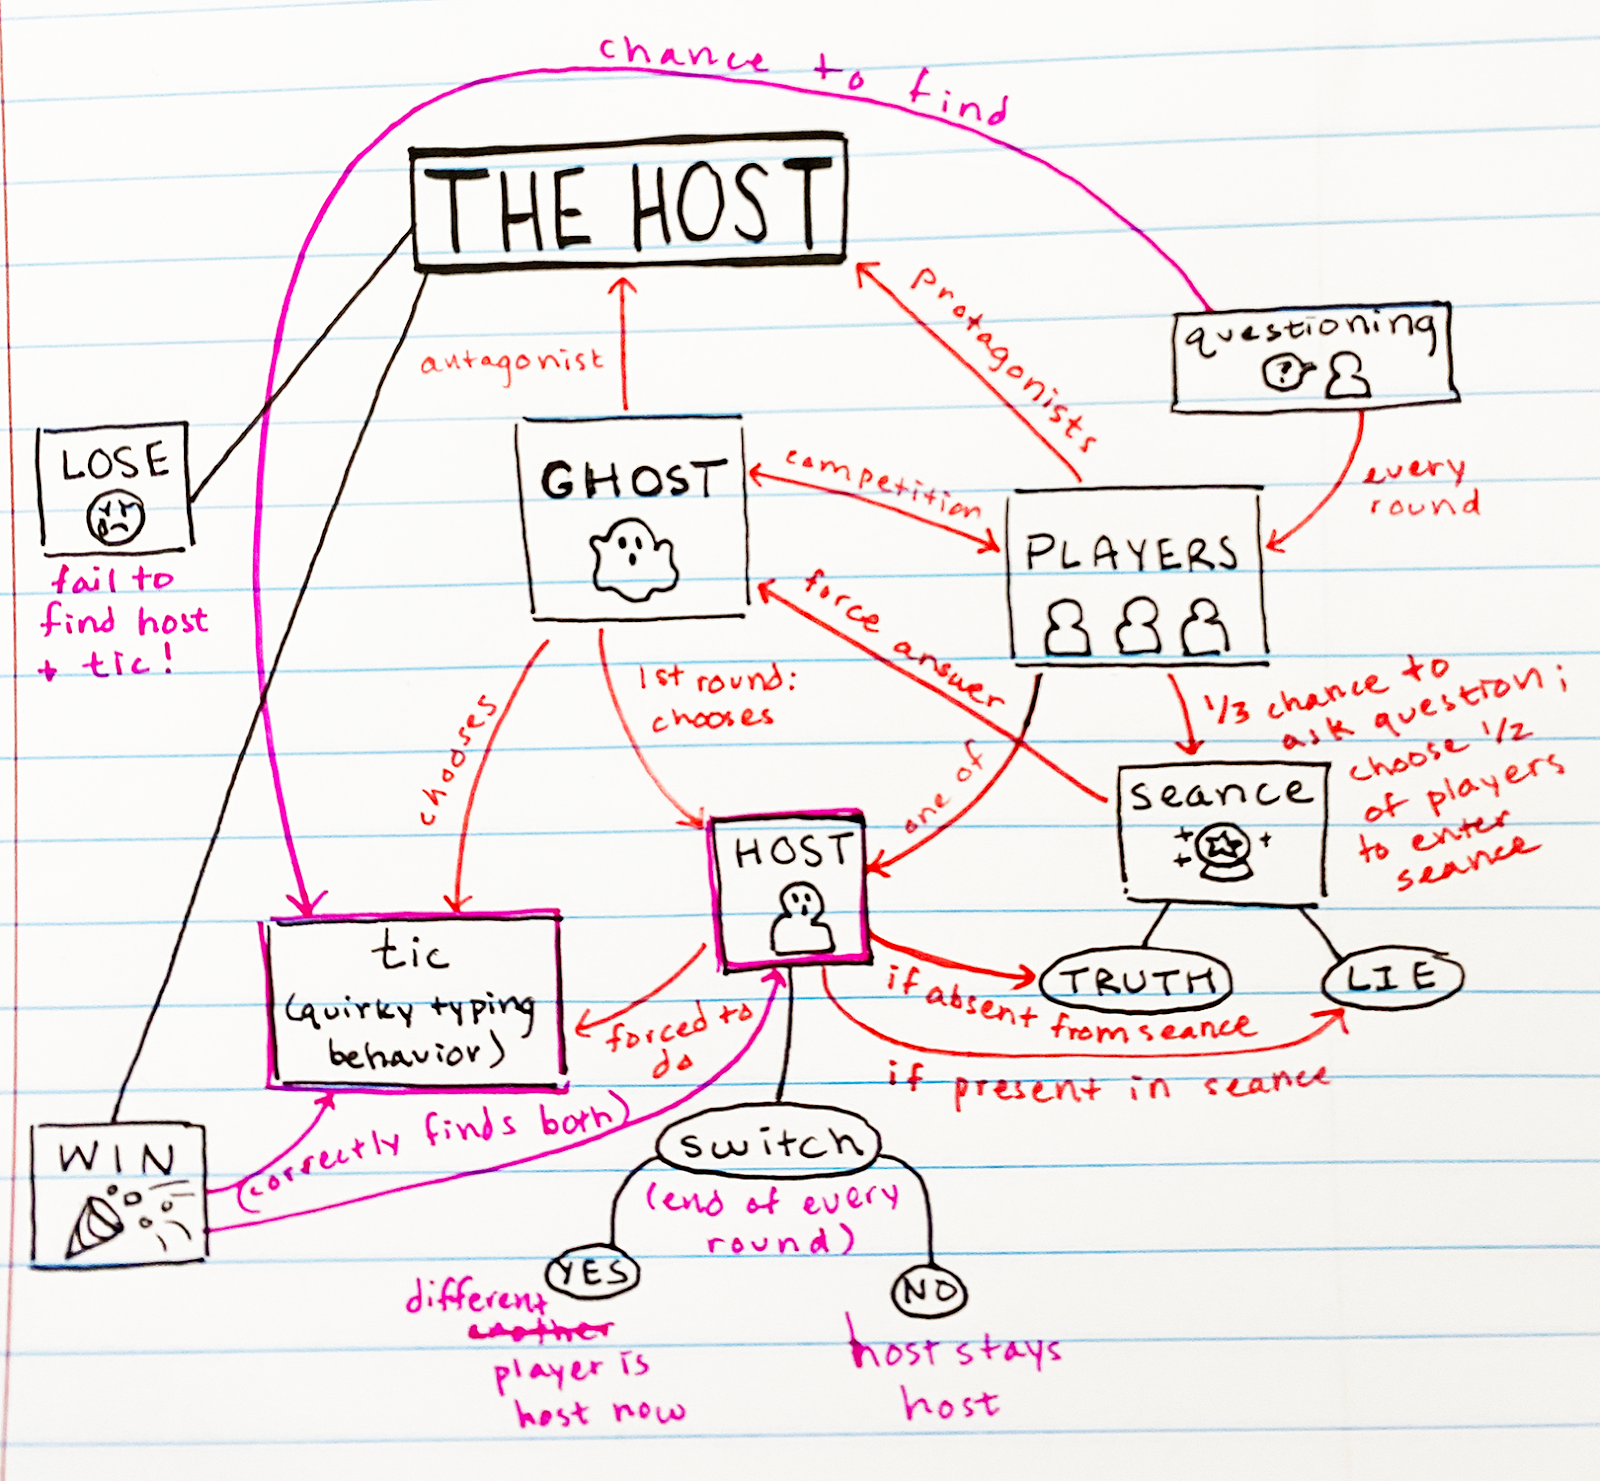 chance to find
THE HOST
antagonist
protagonists
questioning
?
every
round
LOSE
fail to
find host
+ tic!
GHOST
competition
PLAYERS
force answer
chooses
1st round:
chooses
one of
1/3 chance to
ask question;
choose 1/2
of players
to enter
seance
seance
HOST
tic
(quirky typing
behavior)
forced to
do
if absent from seance
TRUTH
LIE
if present in seance
WIN
(correctly finds both)
switch
(end of every
round)
YES
NO
different
another
player is
host now
host stays
host